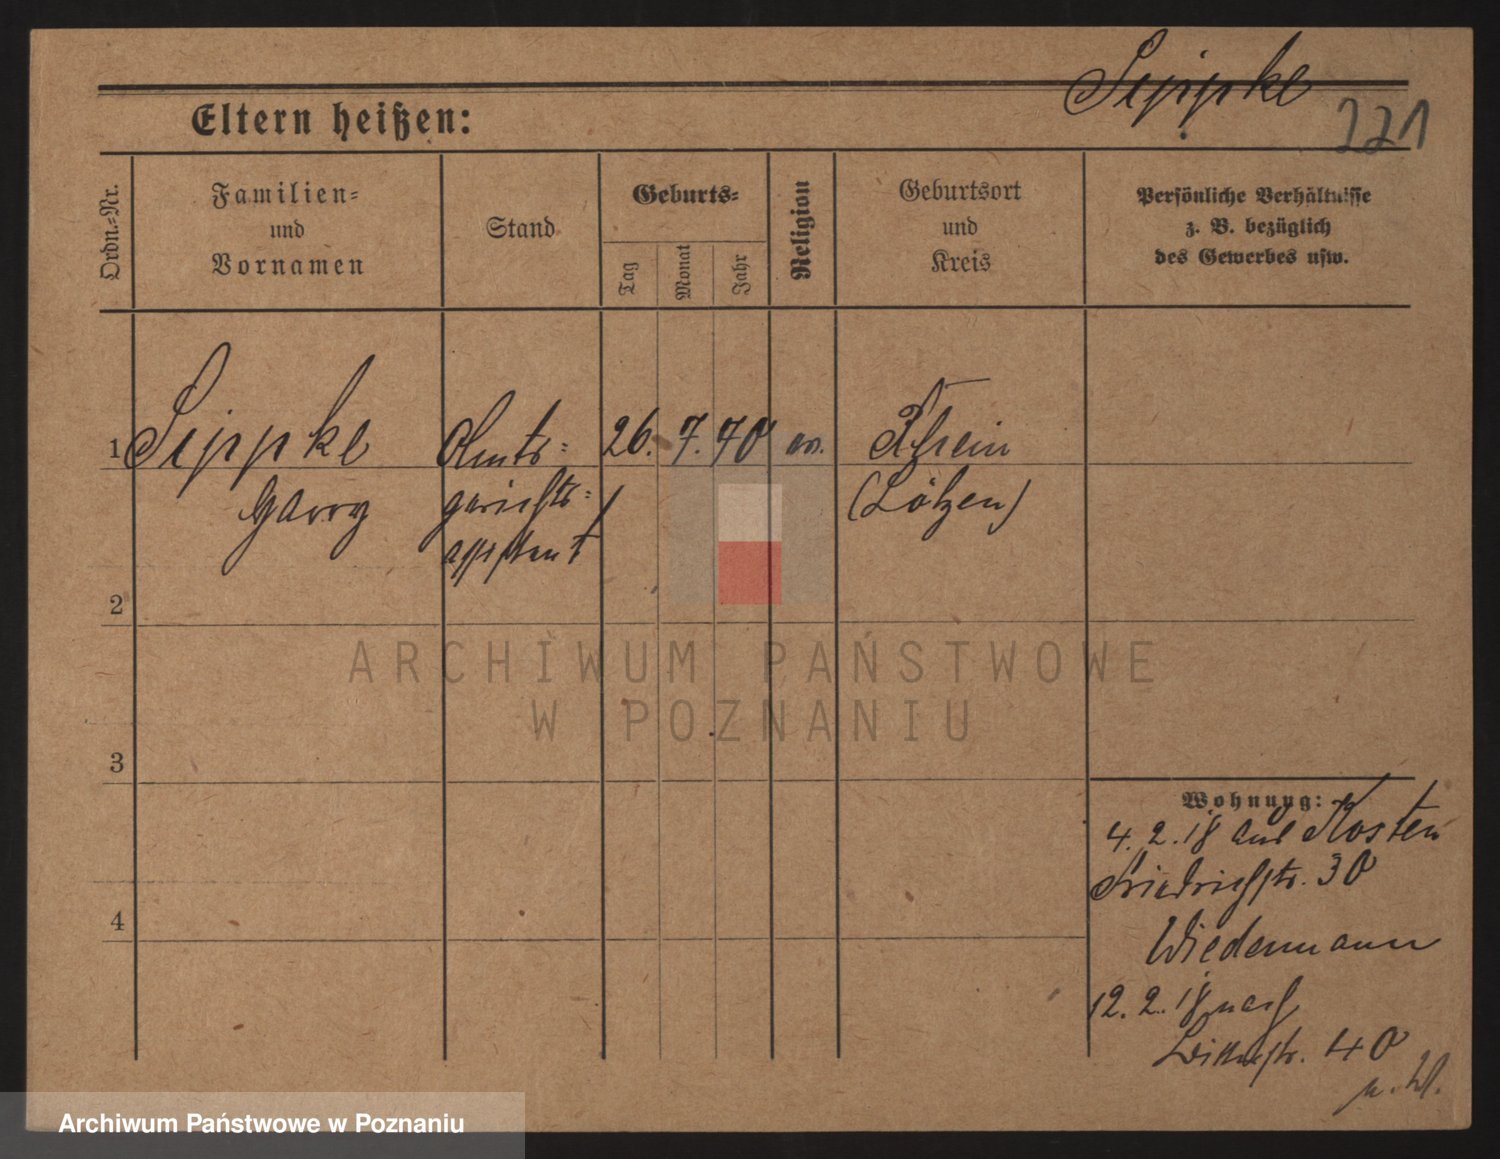 Sippke
221
Eltern heißen:
Ordn.-Nr.
Familien-
und
Vornamen
Stand
Geburts-
Tag
Monat
Jahr
Religion
Geburtsort
und
Kreis
Persönliche Verhältnisse
z. B. bezüglich
des Gewerbes usw.
1 Sippke Amts- 26. 7. 70 ev. Rhein
gerichts- (Lötzen)
assistent
2
3
4
Wohnung:
4. 2. 18 aus Kosten
Friedrichstr. 30
Wiedenmann
12. 2. 18 nach
40
ARCHIWUM PAŃSTWOWE
W POZNANIU
Archiwum Państwowe w Poznaniu